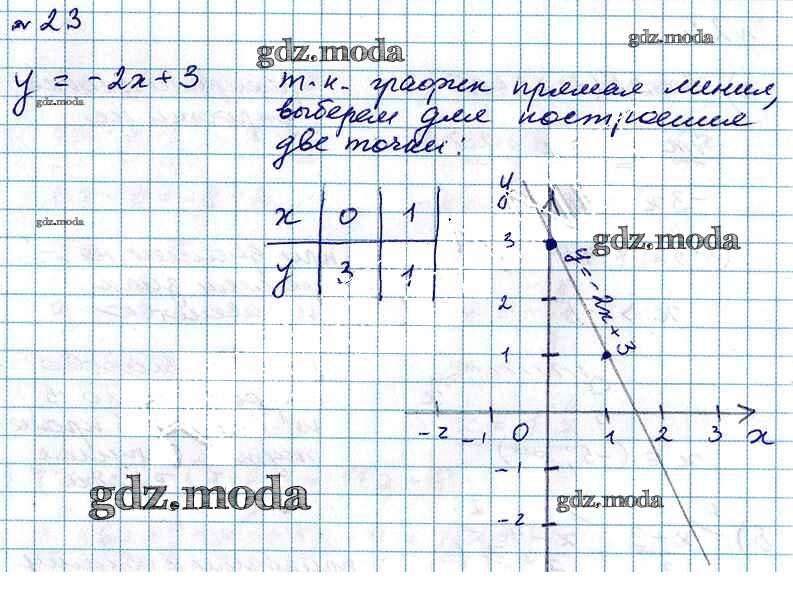 № 23
gdz.moda
gdz.moda
y = -2x+3
gdz.moda
т.к. график прямая линия,
выберем для построения
две точки:
gdz.moda
x 0 1
y 3 1
y
gdz.moda
3
2
1
y=-2x+3
-2 -1 0 1 2 3 x
-1
-2
gdz.moda
gdz.moda